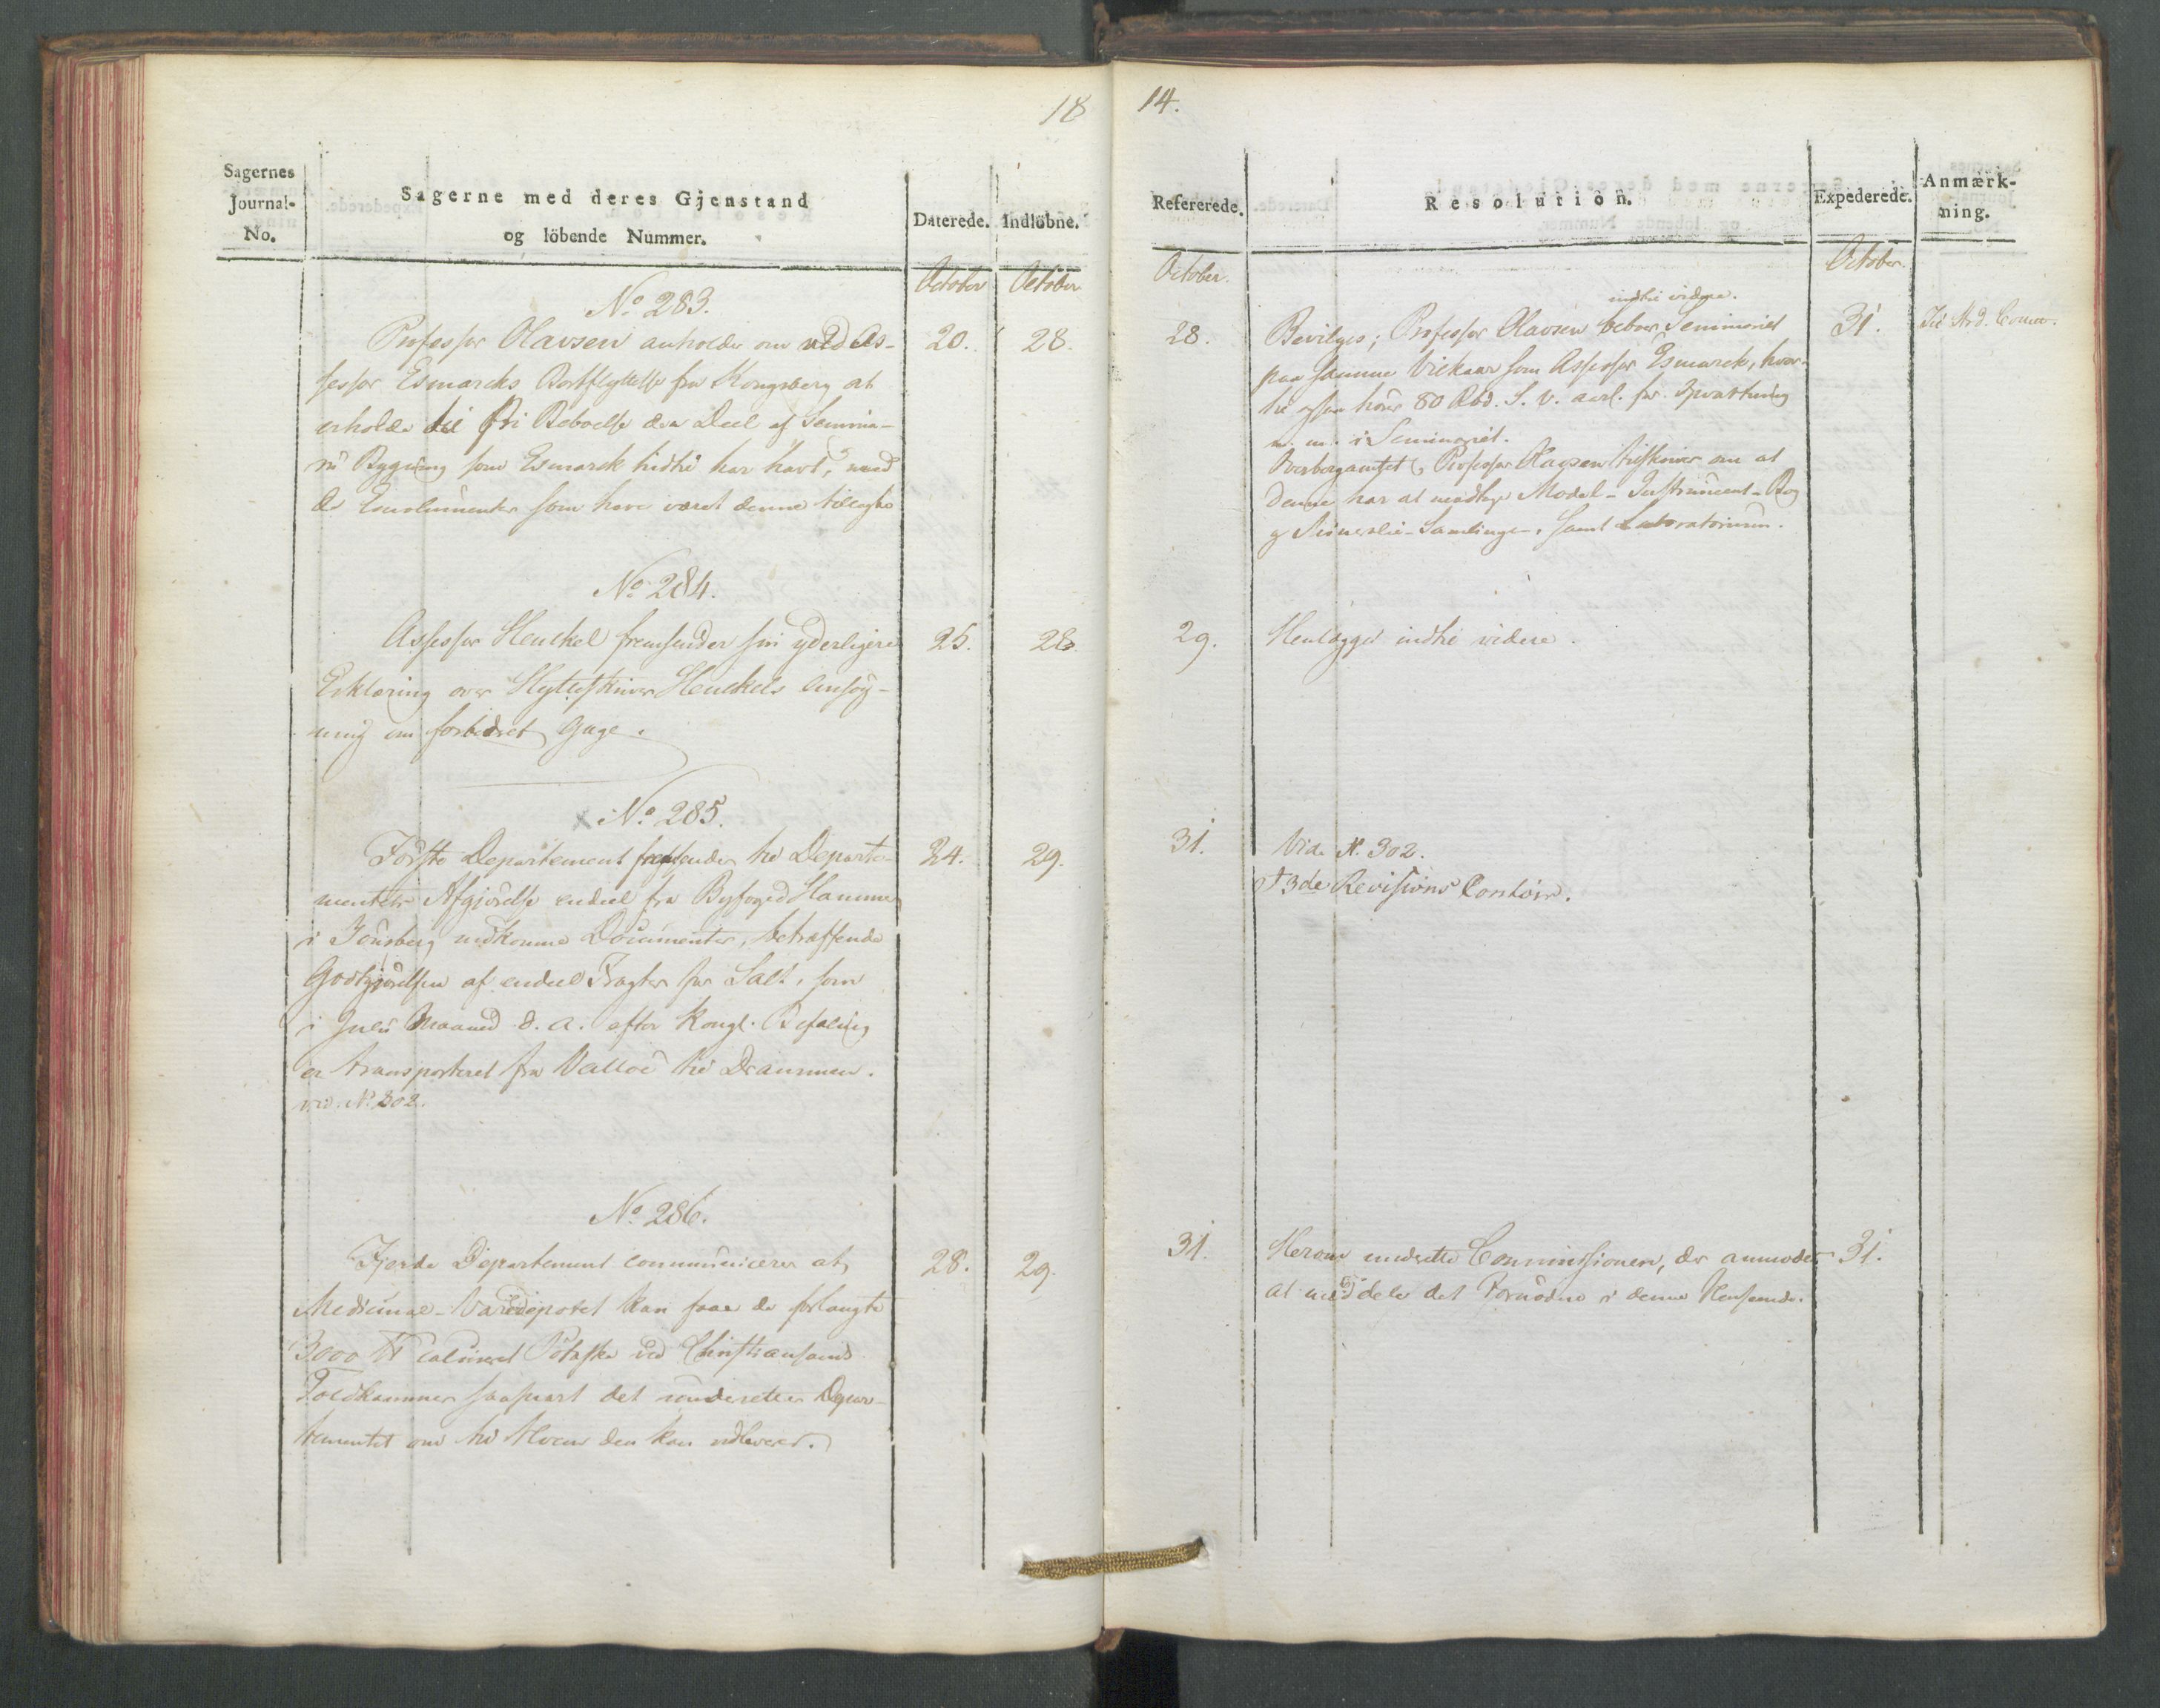 18
Sagernes
Journal-
No.
Sagerne med deres Gjenstand
og löbende Nummer.
Daterede.
Indlöbne.
October
October
No. 283.
Professor Olavsen anholder om ved As-
sessor Esmarcks Bortflyttelse fra Kongsberg at
erholde til fri Beboelse den Deel af Semina-
rii Bygning som Esmarck hidtil har havt, med
de Emolumenter som have været denne tillagte
20.
28.
No. 284.
Assessor Henckel fremsender sin yderligere
Erklæring over Hytteskriver Henckels Ansøg-
ning om forbedret Gage.
25.
28.
No. 285.
Første Departement fremsender til Departe-
mentets Afgjørelse endeel fra Byfoged Hammer
i Tønsberg indkomne Documenter, betræffende
Godtgjørelsen af endeel Fragter for Salt, som
i Julii Maaned d. A. efter Kongl. Befaling
er transporteret fra Valloe til Drammen.
vid. No. 302.
24.
29.
No. 286.
Fjerde Departement communicerer at
Medicinal-Varedepotet kan faae de forlangte
3000 ℔ calcineret Potaske ved Christiansands
Toldkammer saasnart det underretter Depar-
tementet om til Hvem den kan udleveres.
28.
29.
14.
Refererede.
Resolution.
Expederede.
Anmærk-
ning.
October.
October.
indtil videre.
28.
Bevilges; Professor Olavsen beboer Seminariet
paa samme Vilkaar som Assessor Esmarck, hvor-
til ogsaa hører 80 Rbd. S. V. aarl. for Opvartning
m. m. i Seminariet.
Overbergamtet og Professor Olavsen tilskrives om at
denne har at modtage Model- Instrument- Bog
og Mineralie-Samlinger, samt Laboratorium.
31.
29.
Henlægges indtil videre.
31.
Vid. N. 302.
3de Revisions Contoir.
31.
Herom underrettes Commissionen, der anmodes
at meddele det Fornødne i denne Henseende.
31.